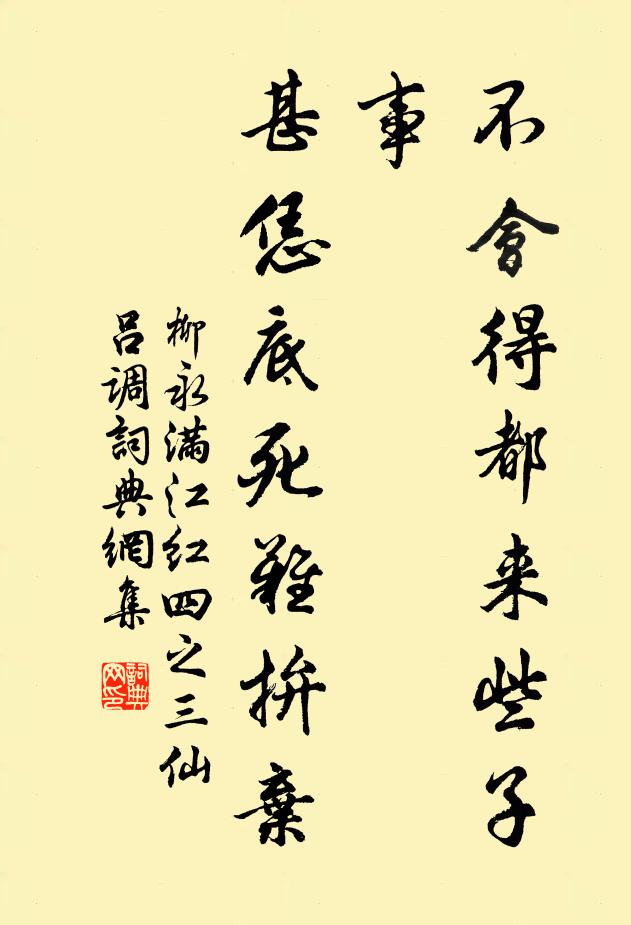 不會得都来些子
事
甚恁底死難拚棄
柳永滿江紅四之三仙
呂調詞典網集
詞典
网印